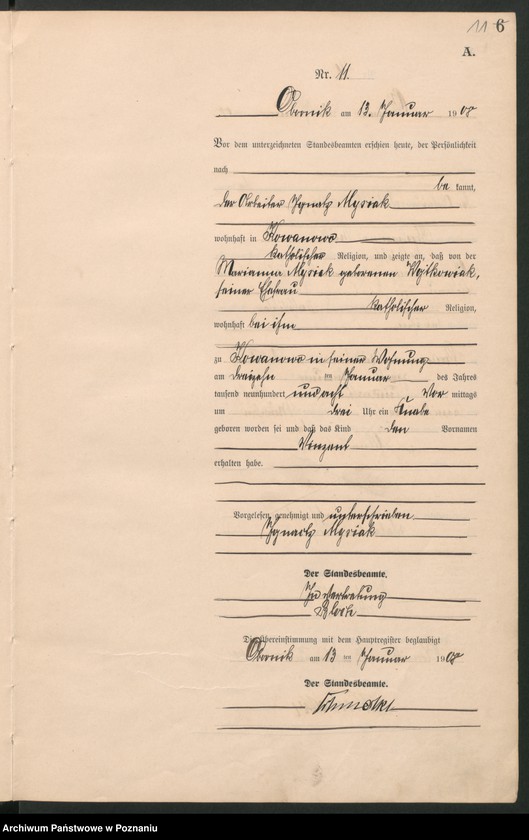 11 6
A.
Nr. 11.
Obornik am 13. Januar 1908
Vor dem unterzeichneten Standesbeamten erschien heute, der Persönlichkeit
nach
be kannt,
der Arbeiter Ignatz Mysiak
wohnhaft in Kowanowo
katholischer Religion, und zeigte an, daß von der
Marianna Mysiak geborenen Wojtkowiak,
seiner Ehefrau
katholischer Religion,
wohnhaft bei ihm
zu Kowanowo in seiner Wohnung
am dreizehn ten Januar des Jahres
tausend neunhundert und acht Vor mittags
um drei Uhr ein Knabe
geboren worden sei und daß das Kind den Vornamen
Vinzent
erhalten habe.
Vorgelesen, genehmigt und unterschrieben
Ignartz Mysiak
Der Standesbeamte.
In Vertretung
Die Übereinstimmung mit dem Hauptregister beglaubigt
Obornik am 13 ten Januar 1908
Der Standesbeamte.
Archiwum Państwowe w Poznaniu